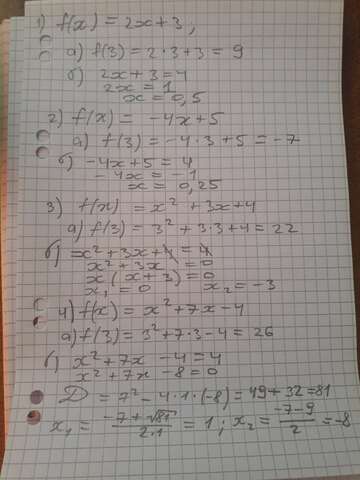 1) f(x) = 2x+3,
a) f(3) = 2·3+3 = 9
б) 2x+3=4
2x = 1
x = 0,5
2) f(x) = -4x+5
a) f(3) = -4·3+5 = -7
б) -4x+5 = 4
-4x = -1
x = 0,25
3) f(x) = x² + 3x+4
a) f(3) = 3² + 3·3+4 = 22
б) x² + 3x+4 = 4
x² + 3x = 0
x(x+3)=0
x₁ = 0 x₂ = -3
4) f(x) = x² + 7x - 4
a) f(3) = 3² + 7·3 - 4 = 26
б) x² + 7x - 4 = 4
x² + 7x - 8 = 0
D = 7² - 4·1·(-8) = 49 + 32 = 81
x₁ = (-7 + √81)/(2·1) = 1; x₂ = (-7-9)/2 = -8